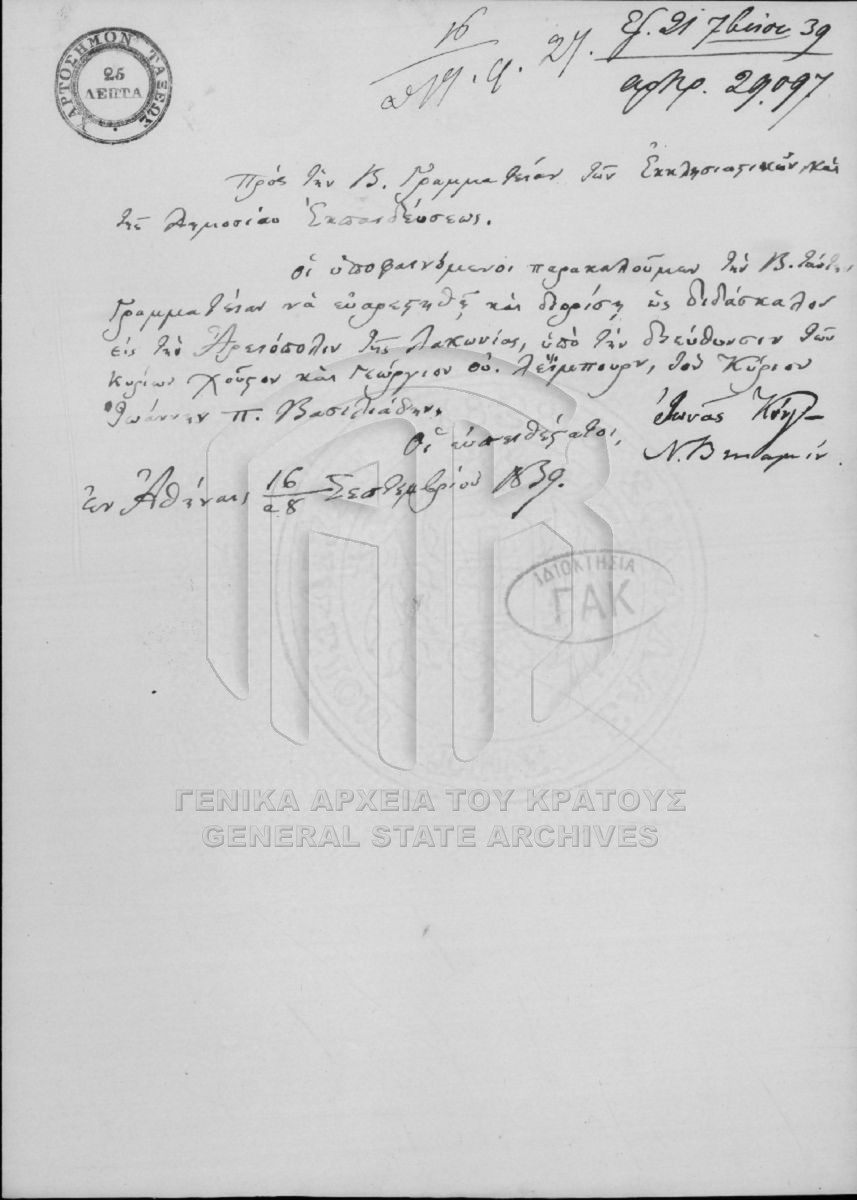 ΧΑΡΤΟΣΗΜΟΝ ΤΑΞΕΩΣ
25
ΛΕΠΤΑ
16
27.
Εξ. 21 7βρίου 39
αριθ. 29,097
Πρὸς τὴν Β. Γραμματείαν τῶν Ἐκκλησιαστικῶν, καὶ
τῆς Δημοσίου Ἐκπαιδεύσεως.
Οἱ ὑποφαινόμενοι παρακαλοῦμεν τὴν Β. ταύτην
Γραμματείαν νὰ εὐαρεστηθῇ καὶ διορίσῃ ὡς διδάσκαλον
εἰς τὴν Ἀρεόπολιν τῆς Λακωνίας, ὑπὸ τὴν διεύθυνσιν τῶν
Κυρίων Χοῦστον καὶ Γεώργιον Οὐ. Λέϊμπουρν, τὸν Κύριον
Ἰωάννην Π. Βασιλιάδην,
Οἱ εὐπειθέστατοι,
Ἰωνᾶς Κίνγ
Ν. Βενιαμίν.
ἐν Ἀθήναις 16/28 Σεπτεμβρίου 1839.
ΙΔΙΟΚΤΗΣΙΑ
ΓΑΚ
ΓΕΝΙΚΑ ΑΡΧΕΙΑ ΤΟΥ ΚΡΑΤΟΥΣ
GENERAL STATE ARCHIVES